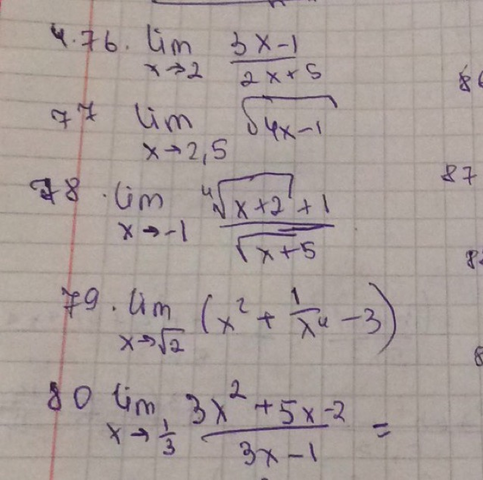 4.76. lim x→2 (3x-1)/(2x+5)
77 lim x→2,5 √(4x-1)
78. lim x→-1 (⁴√(x+2)+1)/√(x+5)
79. lim x→√2 (x² + 1/x⁴ - 3)
80 lim x→1/3 (3x²+5x-2)/(3x-1) =
87